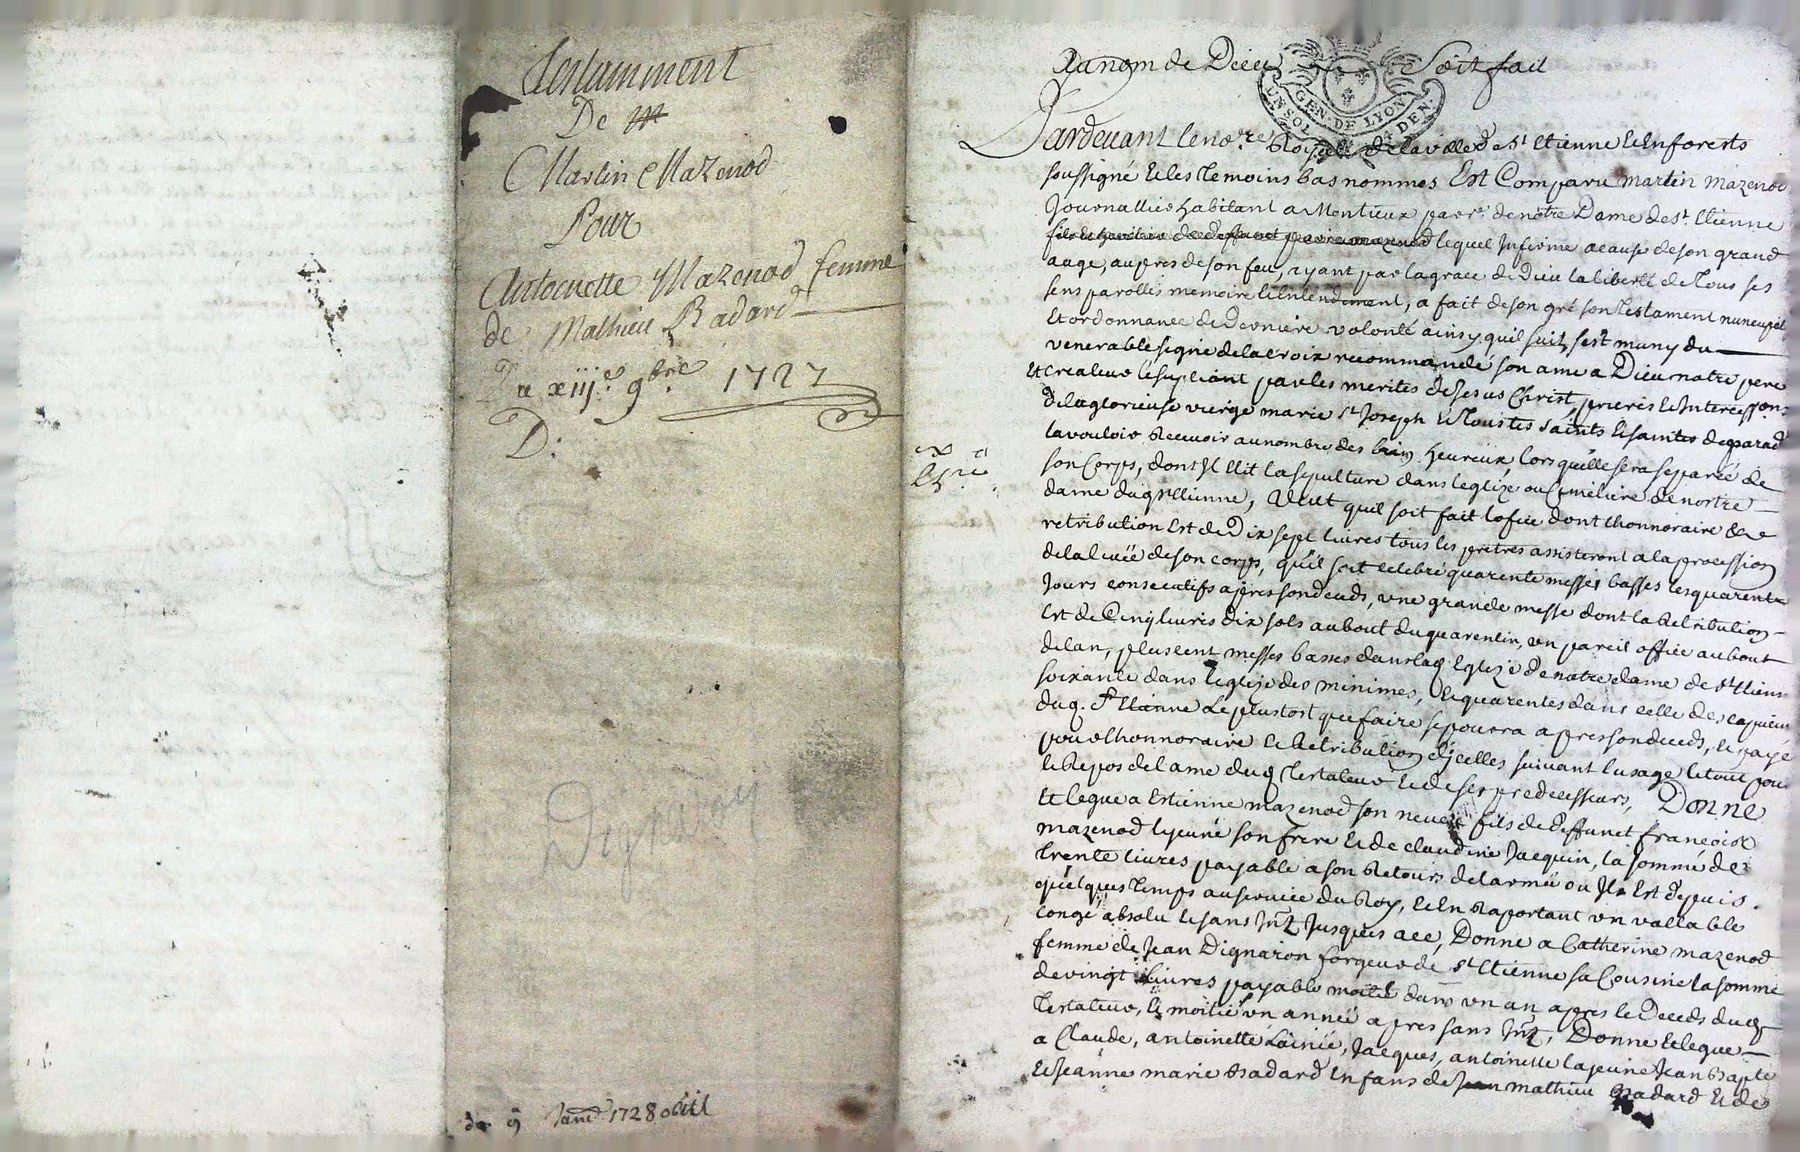 Testamment
De
Martin Mazenod
Pour
Antoinette Mazenod femme
de Mathieu Badard
Du xiij.e 9.bre 1727
D:
Dignaron
du 9 Janv. 1728
Au nom de Dieu Soit fait
GEN. DE LYON
UN SOL 04 DEN.
Pardevant le no.re Royal de la ville de St Etienne En forests
soussigné et les temoins bas nommes Est Comparu martin mazenod
Journallier habitant a Montieux par.e de nôtre Dame de St. Etienne
fils et heritier de deffunct mazenod lequel Infirme a cause de son grand
aage, aupres de son feu, ayant par la grace de Dieu la liberté de tous ses
sens parolles memoire et Entendement, a fait de son gré son testament nuncupatif
Et ordonnance de Derniére volonté ainsy quil suit, sest muny du
venerable signe de la croix recommandé son ame a Dieu notre pere
Et createur le supliant par les merites de Jesus Christ, prieres et Intercessions
de la glorieuse vierge marie st Joseph et tous les saints et saintes de parad
la vouloir Recevoir au nombre des bien heureux, lors quelle sera separée de
son Corps, dont Il Elit la sepulture dans leglize ou Cimetiere de nostre
dame dud st Etienne, Veut quil soit fait lofice dont lhonnoraire &
retribution Est de Dix sept livres tous les prêtres assisteront a la procession
de la levée de son corps, quil soit celebré quarente messes basses les quarente
Jours consecutifs apres son deceds, une grande messe dont la Retribution
Est de Cinq livres dix sols au bout du quarentin, un pareil office au bout
de lan, plus cent messes basses dans lad Eglize de notre dame de St Etienne
soixante dans leglize des minimes, et quarentes dans celle des capucins
dud. St Etienne le plustost que faire se pourra apres son deceds, et payé
pour lhonnoraire et Retribution dycelles suivant lusage le tout pour
le Repos de lame dud Testateur et de ses predecesseurs, Donne
Et legue a Estienne mazenod son neveu fils de deffunct françois
mazenod le jeune son frere et de claudine Jacquin, la somme de
trente livres payable a son Retours de larmée ou Il Est depuis
quelques temps au service du Roy, et En Raportant un vallable
congé absolu et sans Int. Jusques a ce, Donne a Catherine mazenod
femme de Jean Dignaron forgeur de St Etienne sa Cousine la somme
de vingt livres payable moitié dans un an apres le Deceds dud
Testateur, et moitié un année apres sans Int., Donne et legue
a Claude, antoinette lainée, Jacques, antoinette la jeune Jean Bapte
et Jeanne marie Badard Enfans de mathieu Badard et de